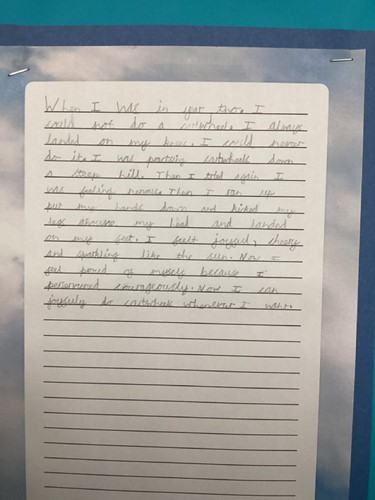 When I was in year two. I
could not do a cartwheel. I always
landed on my knee. I could never
do it. I was practing cartwheels down
a steep hill. Then I tried again I
was feeling nervous. Then I ran up
put my hands down and kicked my
legs above my head and landed
on my feet. I felt joyful, cheery
and sparkling like the sun. Now I
feel proud of myself because I
persevered courageously. Now I can
joyfully do cartwheels whenever I want.